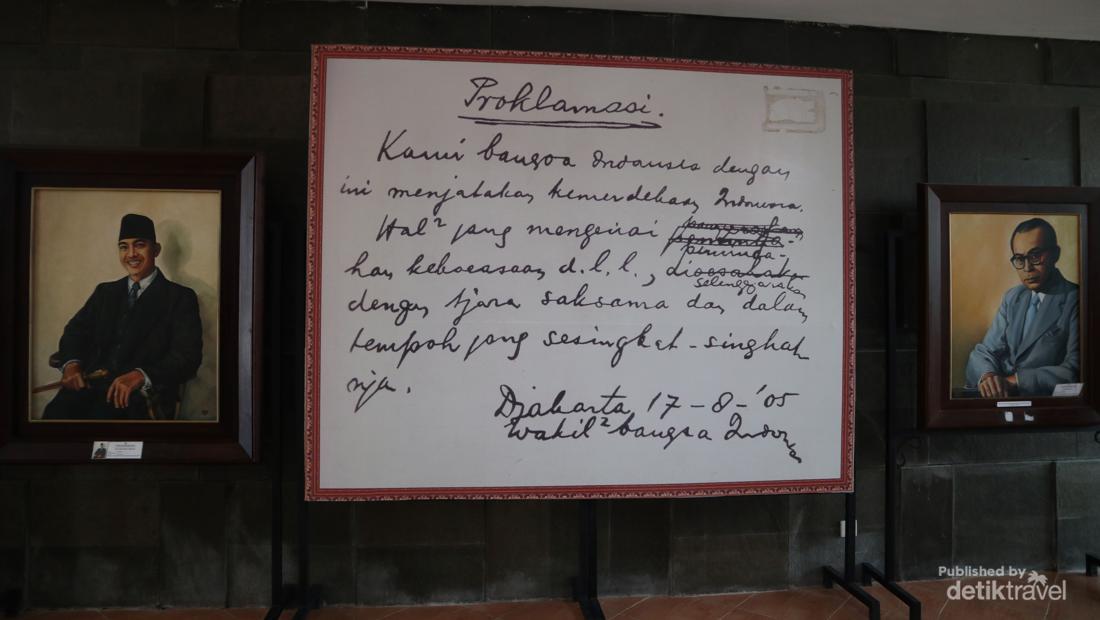 Proklamasi.
Kami bangsa Indonesia dengan
ini menjatakan kemerdekaan Indonesia.
Hal² jang mengenai
peminda-
han keboeasaan d.l.l.,
diselenggarakan
dengan tjara saksama dan dalam
tempoh jang sesingkat-singkat
nja.
Djakarta, 17-8-'05
Wakil² bangsa Indonesia
Published by
detiktravel